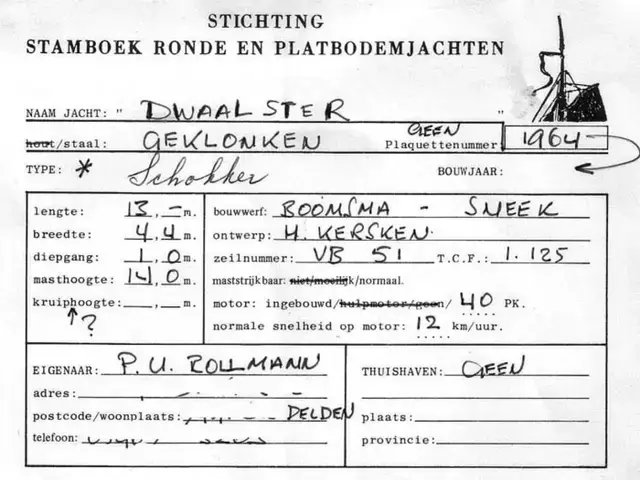 STICHTING
STAMBOEK RONDE EN PLATBODEMJACHTEN
NAAM JACHT: " DWAALSTER "
hout/staal: GEKLONKEN GEEN Plaquettenummer: 1964
TYPE: * Schokker BOUWJAAR:
lengte: 13,-m.
breedte: 4,4m.
diepgang: 1,0m.
masthoogte: 14,0m.
kruiphoogte: , m.
?
bouwwerf: BOOMSMA - SNEEK
ontwerp: H. KERSKEN.
zeilnummer: VB 51 T.C.F.: 1.125
maststrijkbaar: niet/moeilijk/normaal.
motor: ingebouwd/hulpmotor/geen/ 40 PK.
normale snelheid op motor: 12 km/uur.
EIGENAAR: P. U. ROLLMANN
adres:
postcode/woonplaats: DELDEN
telefoon:
THUISHAVEN: GEEN
plaats:
provincie: